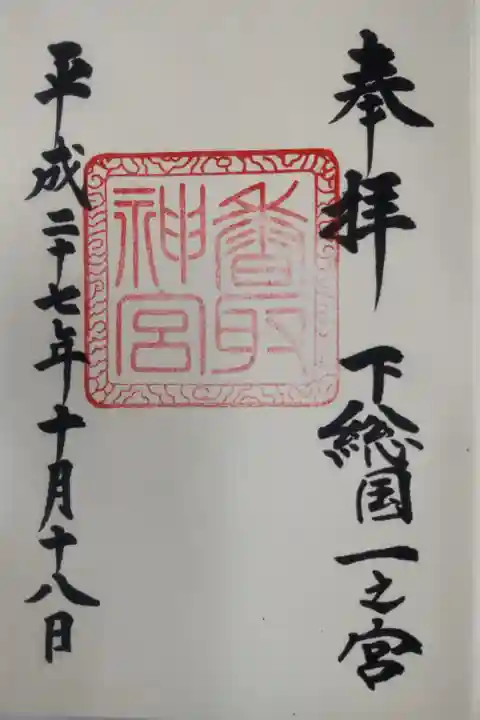 奉拝 下総国一之宮
香取
神宮
平成二十七年十月十八日